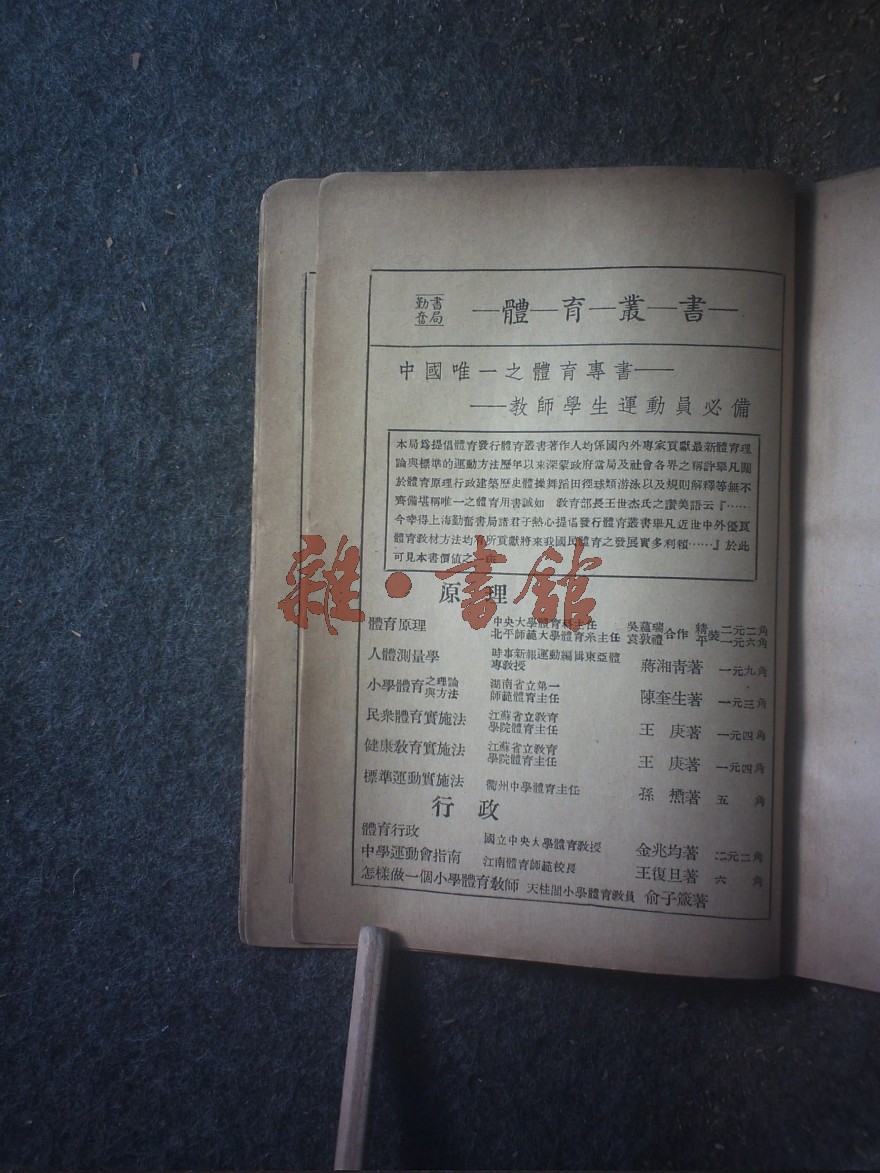 勤奮書局
—體—育—叢—書—
中國唯一之體育專書——
——教師學生運動員必備
本局爲提倡體育發行體育叢書著作人均係國內外專家貢獻最新體育理
論與標準的運動方法歷年以來深蒙政府當局及社會各界之稱許舉凡關
於體育原理行政建築歷史體操舞蹈田徑球類游泳以及規則解釋等無不
齊備堪稱唯一之體育用書誠如 教育部長王世杰氏之讚美語云『……
今幸得上海勤奮書局諸君子熱心提倡發行體育叢書舉凡近世中外優良
體育教材方法均有所貢獻將來我國民體育之發展實多利賴……』於此
可見本書價值之一斑
原理
體育原理 中央大學體育科主任 北平師範大學體育系主任 吳蘊瑞 袁敦禮 合作 精 平 裝 二元二角 一元六角
人體測量學 時事新報運動編輯東亞體專教授 蔣湘青著 一元九角
小學體育之理論與方法 湖南省立第一師範體育主任 陳奎生著 一元三角
民衆體育實施法 江蘇省立教育學院體育主任 王庚著 一元四角
健康敎育實施法 江蘇省立教育學院體育主任 王庚著 一元四角
標準運動實施法 衢州中學體育主任 孫 著 五角
行政
體育行政 國立中央大學體育教授 金兆均著 二元二角
中學運動會指南 江南體育師範校長 王復旦著 六角
怎樣做一個小學體育敎師 天桂閣小學體育教員 俞子箴著
雜·書館